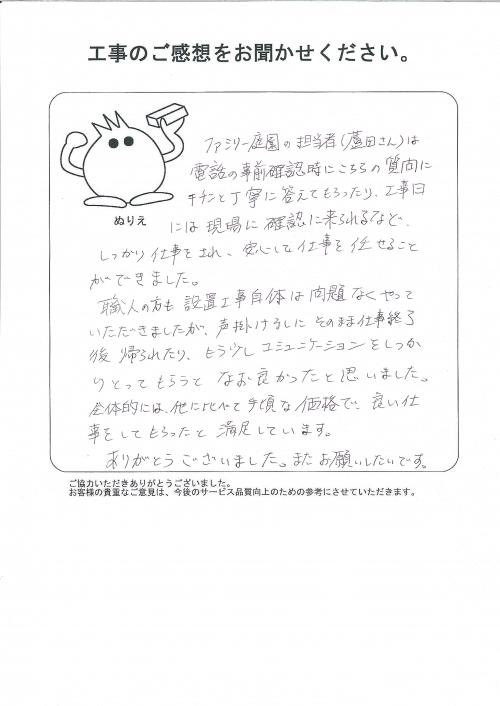 工事のご感想をお聞かせください。
ぬりえ
ファミリー庭園の担当者(薗田さん)は
電話の事前確認時にこちらの質問に
キチンと丁寧に答えてもらったり、工事日
には現場に確認に来られるなど、
しっかり仕事をされ、安心して仕事を任せること
ができました。
職人の方も設置工事自体は問題なくやって
いただきましたが、声掛けなしにそのまま仕事終了
後帰られたり、もう少しコミュニケーションをしっか
りとってもらうとなお良かったと思いました。
全体的には、他に比べて手頃な価格で、良い仕
事をしてもらったと満足しています。
ありがとうございました。またお願いしたいです。
ご協力いただきありがとうございました。
お客様の貴重なご意見は、今後のサービス品質向上のための参考にさせていただきます。